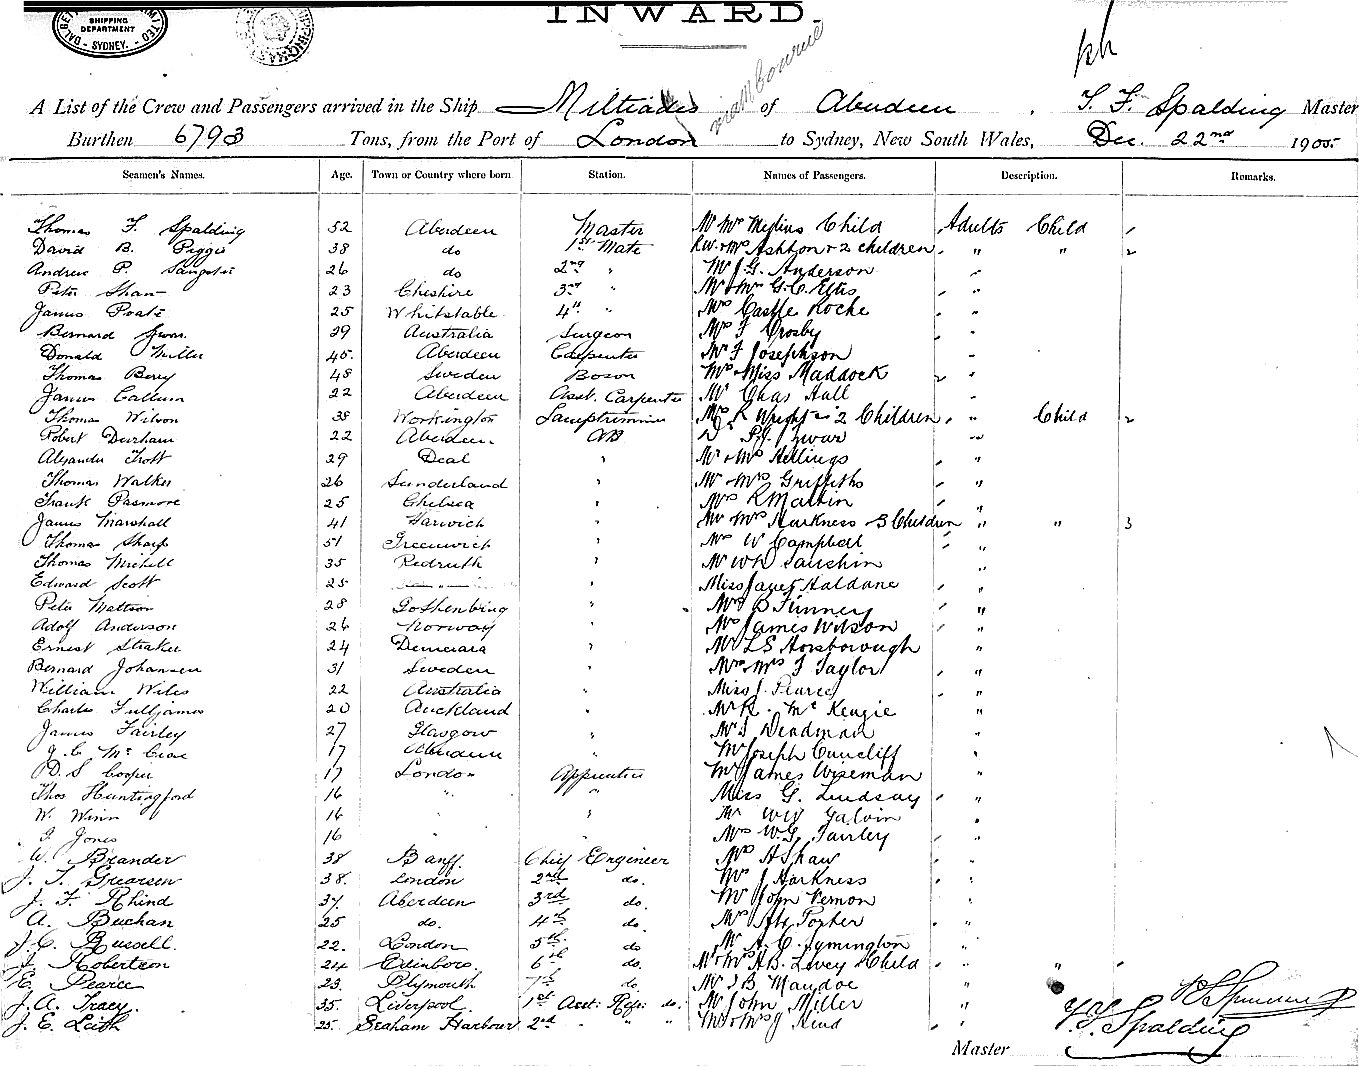 SHIPPING
DEPARTMENT
SYDNEY.
INWARD.
A List of the Crew and Passengers arrived in the Ship Miltiades of Aberdeen, T. F. Spalding Master
via Melbourne
Burthen 6793 Tons, from the Port of London to Sydney, New South Wales, Dec. 22nd 1905.
Seamen's Names. Age. Town or Country where born Station. Names of Passengers. Description. Remarks.
Thomas F. Spalding 52 Aberdeen Master Mr Mrs Child Adults Child
David B. 38 do 1st Mate Rev. & Mrs Ashton & 2 children " " 2
Andrew P. 26 do 2nd " Mr J. G. Anderson "
Peter Shaw 23 Cheshire 3rd " Mr & Mrs G. C. "
James 25 Whitstable 4th " Mrs Castle Roche "
Bernard Zwar 29 Australia Surgeon F Crosby "
Donald Miller 45 Aberdeen Carpenter F Josephson "
Thomas Berry 48 Sweden Boson Mrs & Miss Maddock "
James Callum 22 Aberdeen Asst. Carpenter Mr Chas Hall "
Thomas Wilson 38 Workington Lamptrimmer Mrs R Wright & 2 Children " Child 2
Robert Durham 22 Aberdeen AB Dr P. J. Zwar "
Alexander Trott 29 Deal " Mr & Mrs Hellings "
Thomas Walker 26 Sunderland " Mr Mrs Griffiths "
Frank Pasmore 25 Chelsea " Mrs R Martin "
James Marshall 41 Harwich " Mr Mrs Harkness 3 Children " " 3
Thomas Sharp 51 Greenwich " Mrs W Campbell "
Thomas Michell 35 Redruth " Mr "
Edward Scott 25 " Miss Janet Haldane "
Peter Mattson 28 Gothenburg " Finney "
Adolf Anderson 26 Norway " Mrs James Wilson "
Ernest Straker 24 Demerara " Mr L S Horsborough "
Bernard Johansen 31 Sweden " Mr Mrs F Taylor "
William Wiles 22 Australia " Miss J. Pearce "
Charles Fulljames 20 Auckland " Mr R. McKenzie "
James Fairley 27 Glasgow " Mr S Deadman "
J. C. 17 Aberdeen " Mr Joseph Cuncliff "
D. S Cooper 17 London Apprentice Mr James Wiseman "
Thos Huntingford 16 " " Miss G. Lindsay "
W. Winn 16 " " Mr Galvin "
Jones 16 " " Mrs W. G. Fairley "
W. Brander 38 Banff Chief Engineer Mrs A Shaw "
J. T. Grearsen 38. London 2nd do. J Harkness "
J. F. Rhind 37. Aberdeen 3rd do. Mr John Vernon "
A. Buchan 25 do. 4th do. Porter "
J. C. Bussell. 22. London 5th do Mr A. C. Symington "
J. Robertson 24 Edinboro. 6th do. Mr & Mrs A. B. Levey & Child " "
E. Pearce 23. Plymouth 7th do. Mr J B "
J. A. Tracy. 35. Liverpool 1st Asst: Refr: do. Mr John Miller "
J. E. Leith 25. Seaham Harbour 2nd " " Mr & Mrs J "
T. F. Spalding
Master